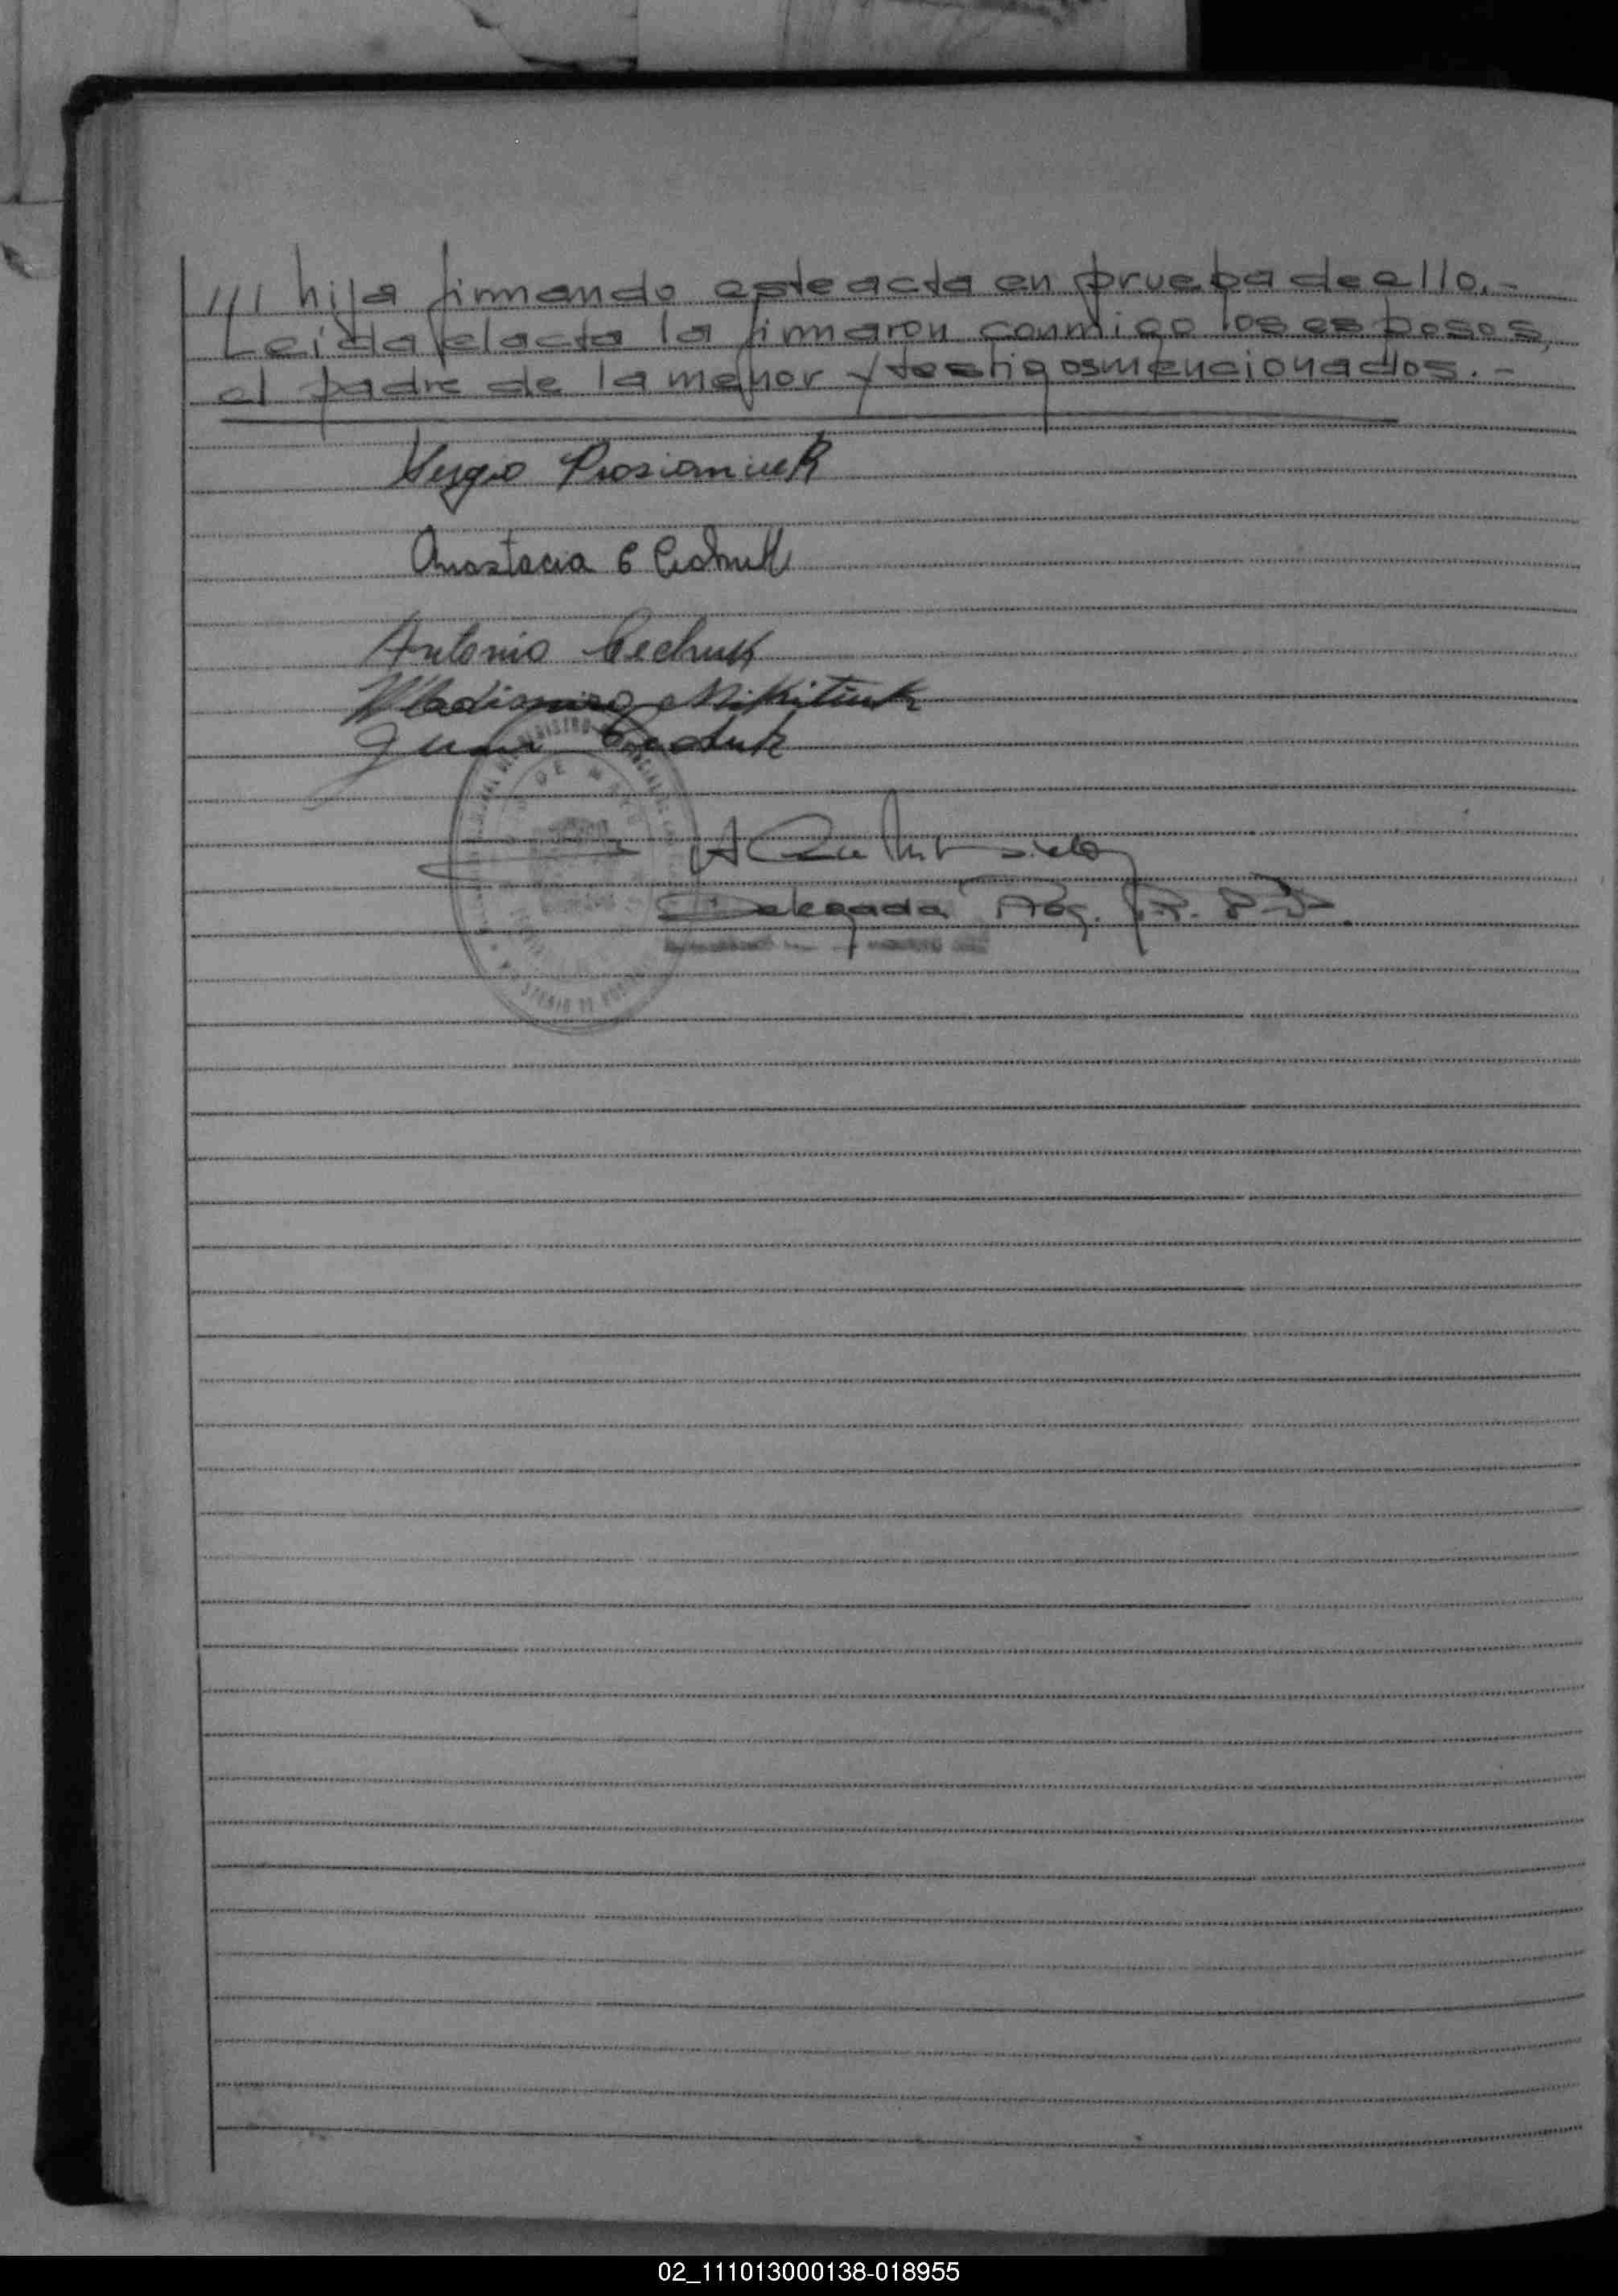 /// hija firmando este acta en prueba de ello.-
Leida el acta la firmaron conmigo los esposos,
el padre de la menor y testigos mencionados.-
Sergio Prosianiuk
Anastacia C Cechuk
Antonio Cechuk
Wladimiro Nikitiuk
Juan Cechuk
Delegada Reg. P. P. P.
02_111013000138-018955